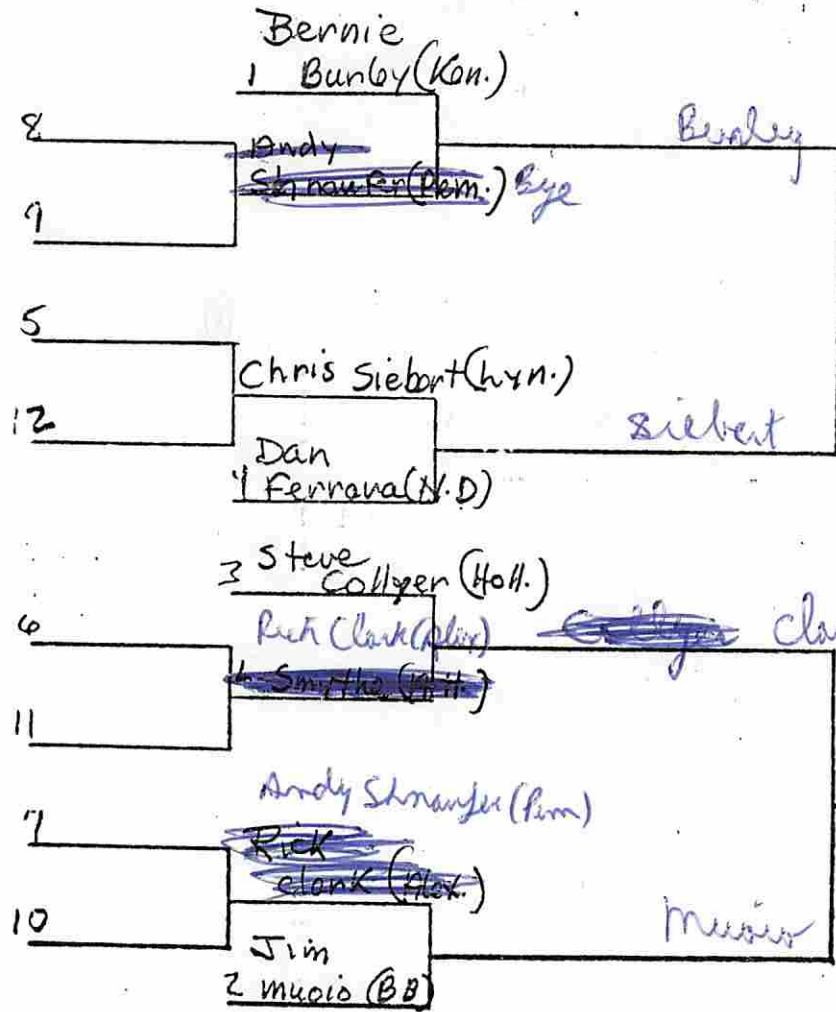 Bernie
1 Burley (Ken.)
8
Andy
Shnaufer (Pem.) Bye
Burley
9
5
Chris Siebert (Lyn.)
12
Dan
4 Ferrara (N.D)
Siebert
3 Steve
Collyer (Holl.)
6
Rick Clark (Alex)
Collyer Cla
Smythe
11
Andy Shnaufer (Pem)
7
Rick
Clark (Alex.)
10
Jim
2 Muoio (BB)
Muoio